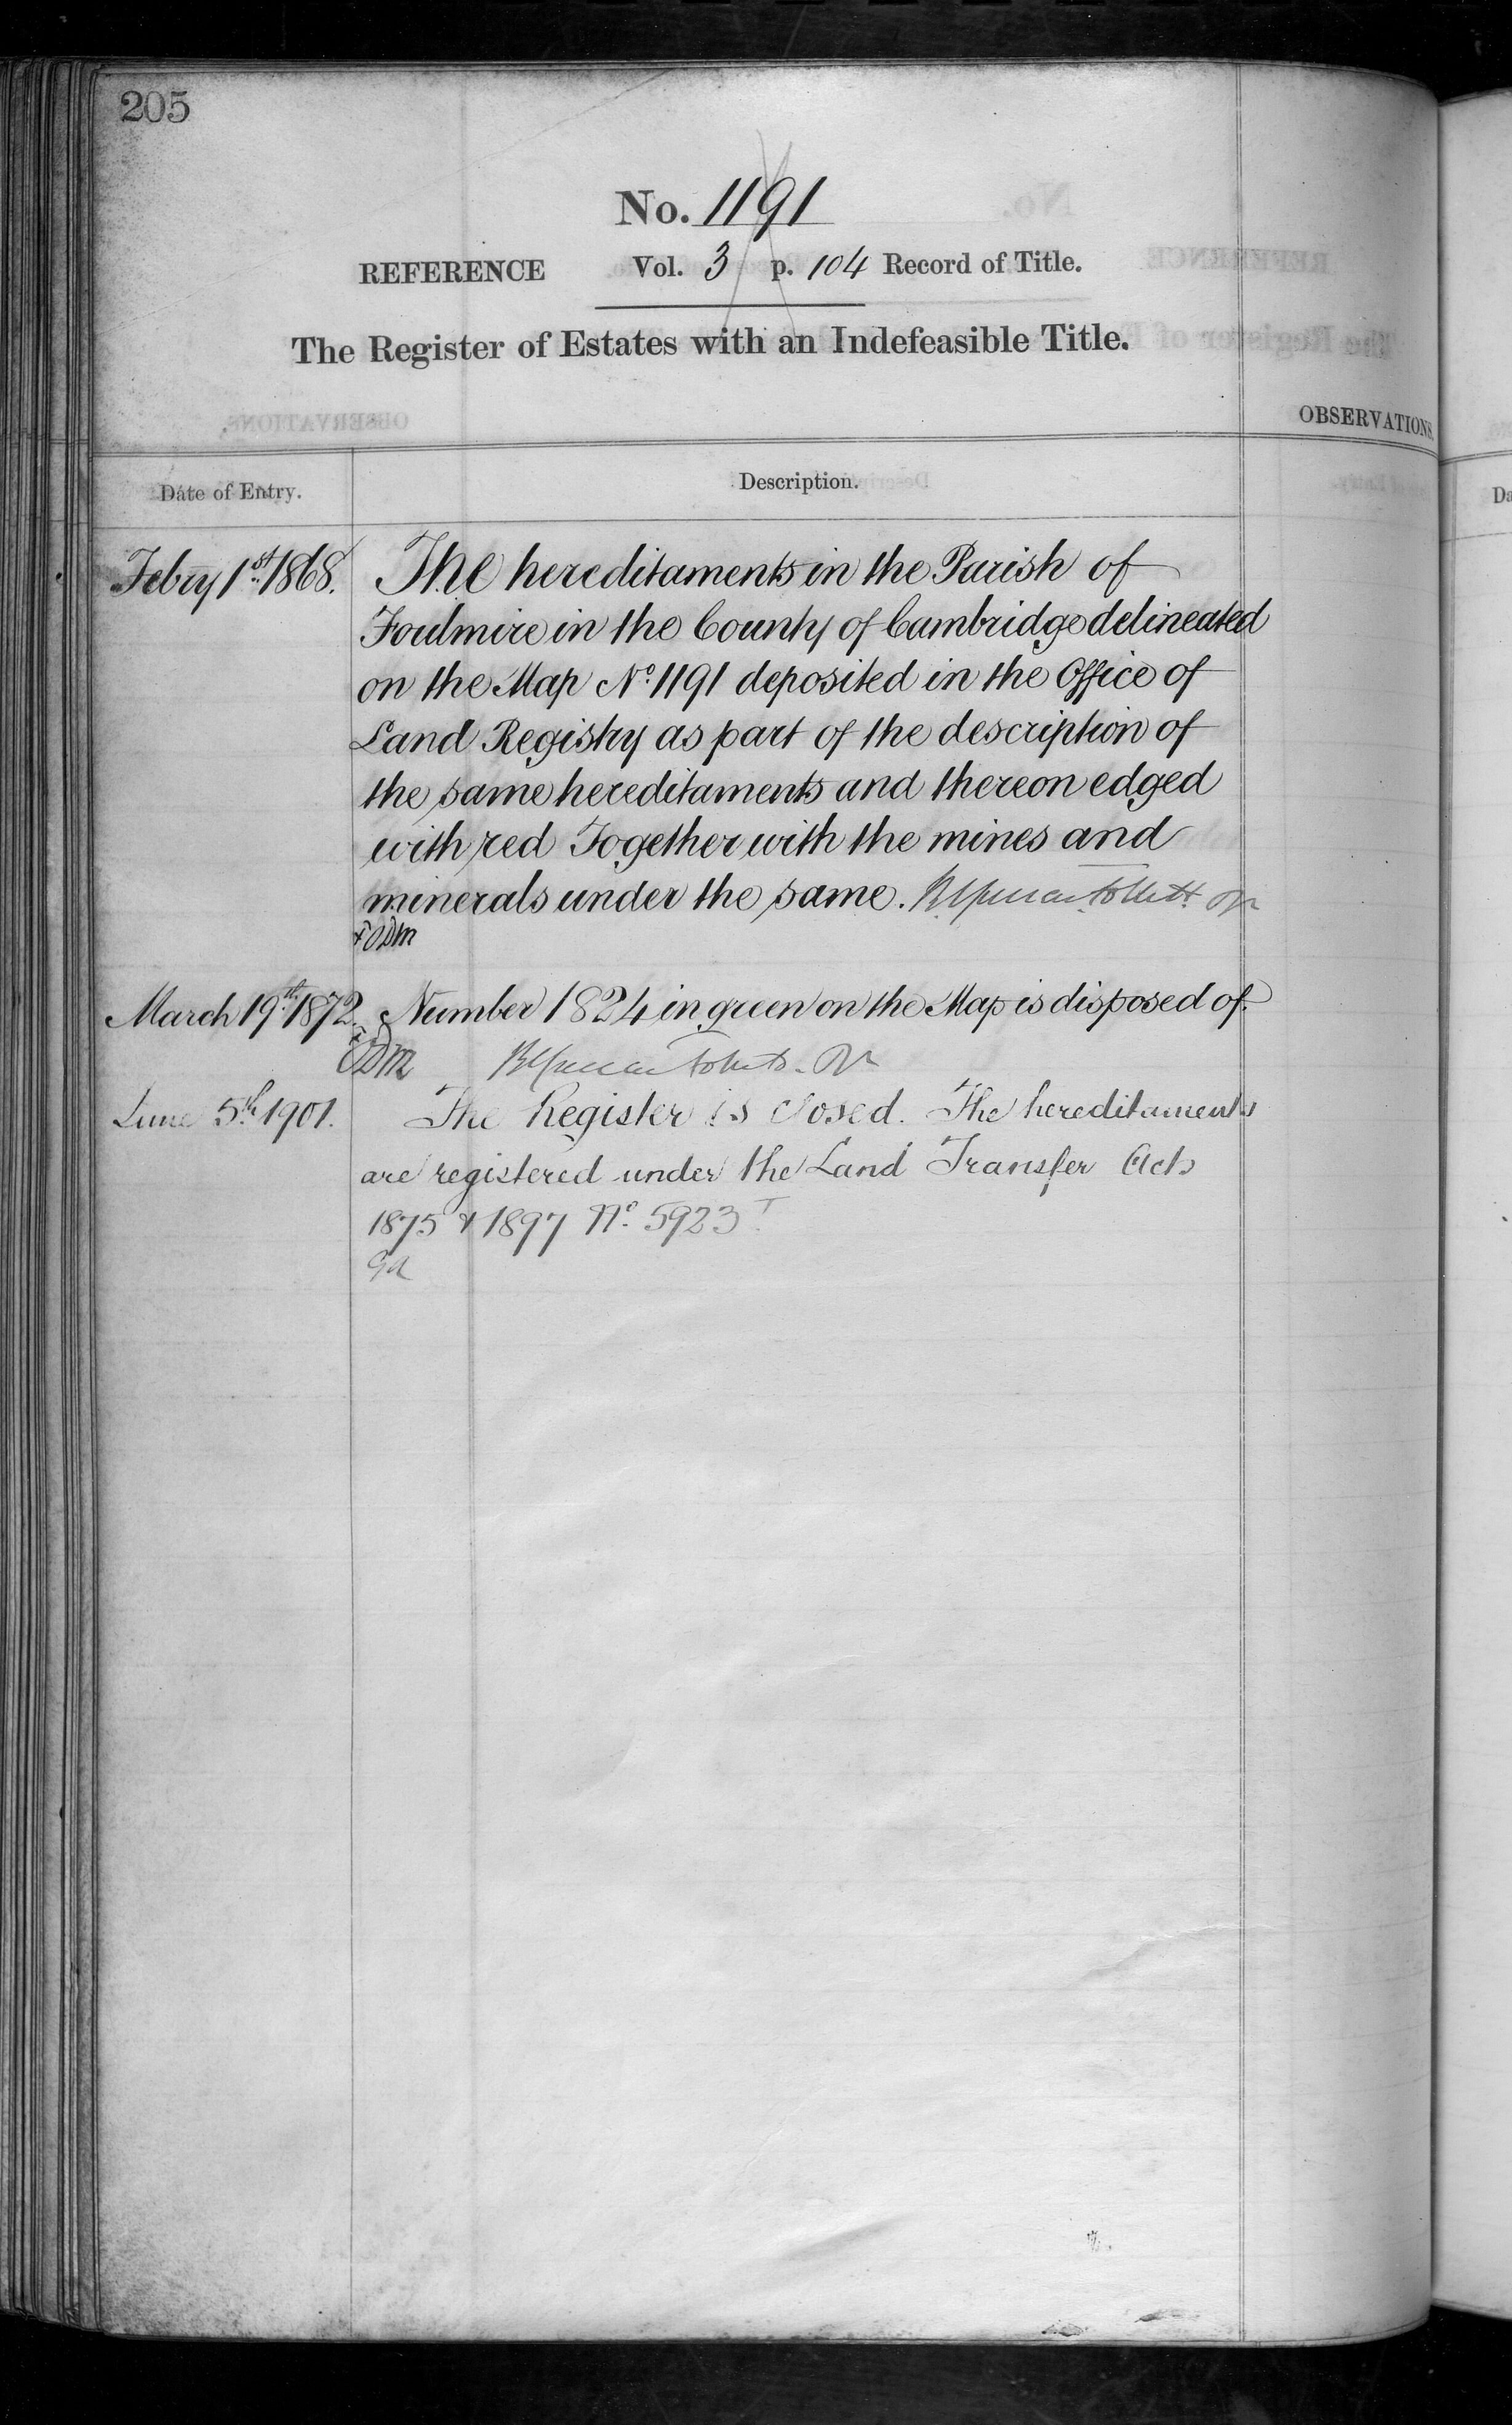 205
No. 1191
REFERENCE Vol. 3 p. 104 Record of Title.
The Register of Estates with an Indefeasible Title.
OBSERVATIONS.
Date of Entry. Description.
Febry 1st. 1868. The hereditaments in the Parish of
Foulmire in the County of Cambridge delineated
on the Map No. 1191 deposited in the Office of
Land Registry as part of the description of
the same hereditaments and thereon edged
with red Together with the mines and
minerals under the same.
March 19th. 1872. Number 1824 in green on the Map is disposed of.
June 5th. 1901. The Register is closed. The hereditaments
are registered under the Land Transfer Acts
1875 & 1897 No. 5923